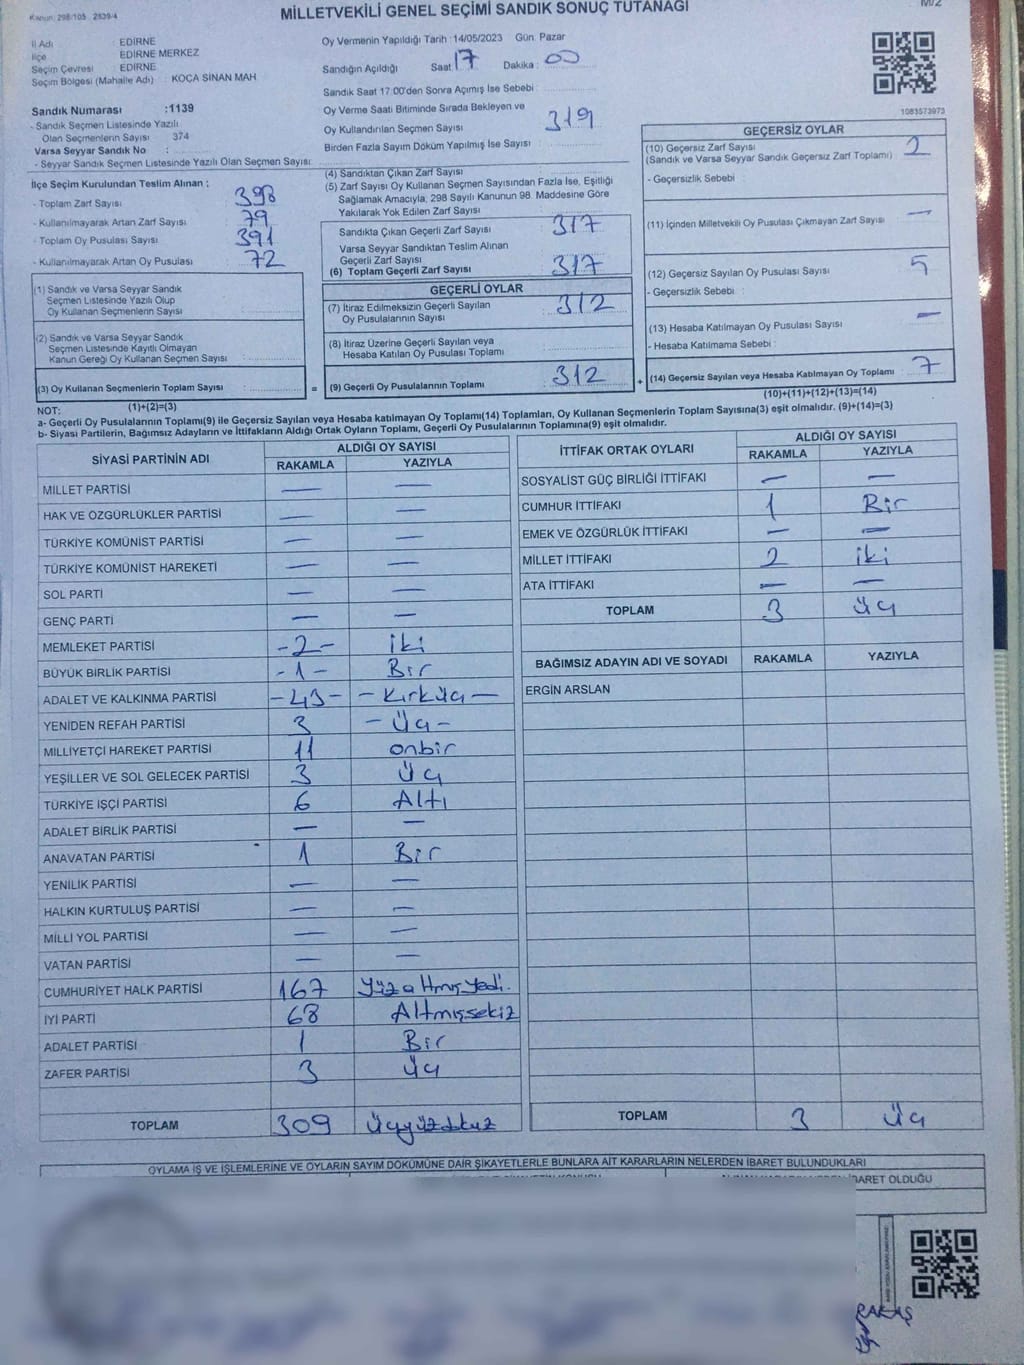 Kanun: 298/105 2839/4
MİLLETVEKİLİ GENEL SEÇİMİ SANDIK SONUÇ TUTANAĞI
M/2
İl Adı : EDİRNE
İlçe : EDİRNE MERKEZ
Seçim Çevresi : EDİRNE
Seçim Bölgesi (Mahalle Adı) : KOCA SİNAN MAH
Sandık Numarası :1139
- Sandık Seçmen Listesinde Yazılı
Olan Seçmenlerin Sayısı : 374
Varsa Seyyar Sandık No :
- Seyyar Sandık Seçmen Listesinde Yazılı Olan Seçmen Sayısı:
Oy Vermenin Yapıldığı Tarih :14/05/2023 Gün: Pazar
Sandığın Açıldığı Saat 17 Dakika : 00
Sandık Saat 17:00'den Sonra Açımış İse Sebebi :
Oy Verme Saati Bitiminde Sırada Bekleyen ve
Oy Kullandırılan Seçmen Sayısı 319
Birden Fazla Sayım Döküm Yapılmış İse Sayısı :
1081573973
İlçe Seçim Kurulundan Teslim Alınan :
- Toplam Zarf Sayısı : 398
- Kullanılmayarak Artan Zarf Sayısı : 79
- Toplam Oy Pusulası Sayısı : 391
- Kullanılmayarak Artan Oy Pusulası : 72
(1) Sandık ve Varsa Seyyar Sandık
Seçmen Listesinde Yazılı Olup
Oy Kullanan Seçmenlerin Sayısı :
(2) Sandık ve Varsa Seyyar Sandık
Seçmen Listesinde Kayıtlı Olmayan
Kanun Gereği Oy Kullanan Seçmen Sayısı :
(3) Oy Kullanan Seçmenlerin Toplam Sayısı :
(4) Sandıktan Çıkan Zarf Sayısı :
(5) Zarf Sayısı Oy Kullanan Seçmen Sayısından Fazla İse, Eşitliği
Sağlamak Amacıyla, 298 Sayılı Kanunun 98. Maddesine Göre
Yakılarak Yok Edilen Zarf Sayısı :
Sandıkta Çıkan Geçerli Zarf Sayısı 317
Varsa Seyyar Sandıktan Teslim Alınan
Geçerli Zarf Sayısı
(6) Toplam Geçerli Zarf Sayısı 317
GEÇERLİ OYLAR
(7) İtiraz Edilmeksizin Geçerli Sayılan
Oy Pusulalarının Sayısı : 312
(8) İtiraz Üzerine Geçerli Sayılan veya
Hesaba Katılan Oy Pusulası Toplamı :
= (9) Geçerli Oy Pusulalarının Toplamı : 312
GEÇERSİZ OYLAR
(10) Geçersiz Zarf Sayısı : 2
(Sandık ve Varsa Seyyar Sandık Geçersiz Zarf Toplamı)
- Geçersizlik Sebebi :
(11) İçinden Milletvekili Oy Pusulası Çıkmayan Zarf Sayısı : —
(12) Geçersiz Sayılan Oy Pusulası Sayısı : 5
- Geçersizlik Sebebi :
(13) Hesaba Katılmayan Oy Pusulası Sayısı : —
- Hesaba Katılmama Sebebi :
+ (14) Geçersiz Sayılan veya Hesaba Katılmayan Oy Toplamı : 7
NOT: (1)+(2)=(3)
(10)+(11)+(12)+(13)=(14)
a- Geçerli Oy Pusulalarının Toplamı(9) ile Geçersiz Sayılan veya Hesaba katılmayan Oy Toplamı(14) Toplamları, Oy Kullanan Seçmenlerin Toplam Sayısına(3) eşit olmalıdır. (9)+(14)=(3)
b- Siyasi Partilerin, Bağımsız Adayların ve İttifakların Aldığı Ortak Oyların Toplamı, Geçerli Oy Pusulalarının Toplamına(9) eşit olmalıdır.
SİYASİ PARTİNİN ADI ALDIĞI OY SAYISI
RAKAMLA YAZIYLA
MİLLET PARTİSİ — —
HAK VE ÖZGÜRLÜKLER PARTİSİ — —
TÜRKİYE KOMÜNİST PARTİSİ — —
TÜRKİYE KOMÜNİST HAREKETİ — —
SOL PARTİ — —
GENÇ PARTİ — —
MEMLEKET PARTİSİ -2- iki
BÜYÜK BİRLİK PARTİSİ -1- Bir
ADALET VE KALKINMA PARTİSİ -43- - Kırküç -
YENİDEN REFAH PARTİSİ 3 - Üç -
MİLLİYETÇİ HAREKET PARTİSİ 11 onbir
YEŞİLLER VE SOL GELECEK PARTİSİ 3 Üç
TÜRKİYE İŞÇİ PARTİSİ 6 Altı
ADALET BİRLİK PARTİSİ — —
ANAVATAN PARTİSİ 1 Bir
YENİLİK PARTİSİ — —
HALKIN KURTULUŞ PARTİSİ — —
MİLLİ YOL PARTİSİ — —
VATAN PARTİSİ — —
CUMHURİYET HALK PARTİSİ 167 Yüzaltmışyedi.
İYİ PARTİ 68 Altmışsekiz
ADALET PARTİSİ 1 Bir
ZAFER PARTİSİ 3 Üç
TOPLAM 309 Üçyüzdokuz
İTTİFAK ORTAK OYLARI ALDIĞI OY SAYISI
RAKAMLA YAZIYLA
SOSYALİST GÜÇ BİRLİĞİ İTTİFAKI — —
CUMHUR İTTİFAKI 1 Bir
EMEK VE ÖZGÜRLÜK İTTİFAKI — —
MİLLET İTTİFAKI 2 iki
ATA İTTİFAKI — —
TOPLAM 3 Üç
BAĞIMSIZ ADAYIN ADI VE SOYADI RAKAMLA YAZIYLA
ERGİN ARSLAN
TOPLAM 3 Üç
OYLAMA İŞ VE İŞLEMLERİNE VE OYLARIN SAYIM DÖKÜMÜNE DAİR ŞİKAYETLERLE BUNLARA AİT KARARLARIN NELERDEN İBARET BULUNDUKLARI
İBARET OLDUĞU